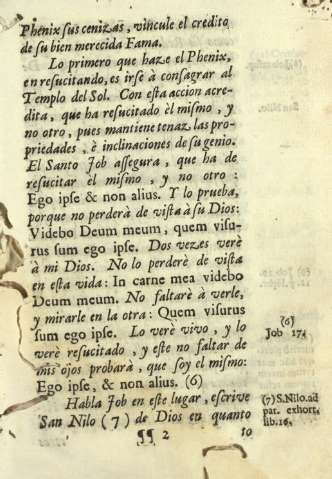 Phenix sus cenizas, vincule el credito
de su bien merecida Fama.
Lo primero que haze el Phenix,
en resucitando, es irse à consagrar al
Templo del Sol. Con esta accion acre-
dita, que ha resucitado èl mismo, y
no otro, pues mantiene tenaz las pro-
piedades, è inclinaciones de su genio.
El Santo Job assegura, que ha de
resucitar èl mismo, y no otro:
Ego ipse & non alius. Y lo prueba,
porque no perderà de vista à su Dios:
Videbo Deum meum, quem visu-
rus sum ego ipse. Dos vezes verè
à mi Dios. No lo perderè de vista
en esta vida: In carne mea videbo
Deum meum. No faltarè à verle,
y mirarle en la otra: Quem visurus
sum ego ipse. Lo verè vivo, y lo
verè resucitado, y este no faltar de
mis ojos probarà, que soy el mismo:
Ego ipse, & non alius. (6)
(6)
Job 17.
Habla Job en este lugar, escrive
San Nilo (7) de Dios en quanto
(7) S. Nilo. ad
par. exhort.
lib. 16.
¶¶ 2
to